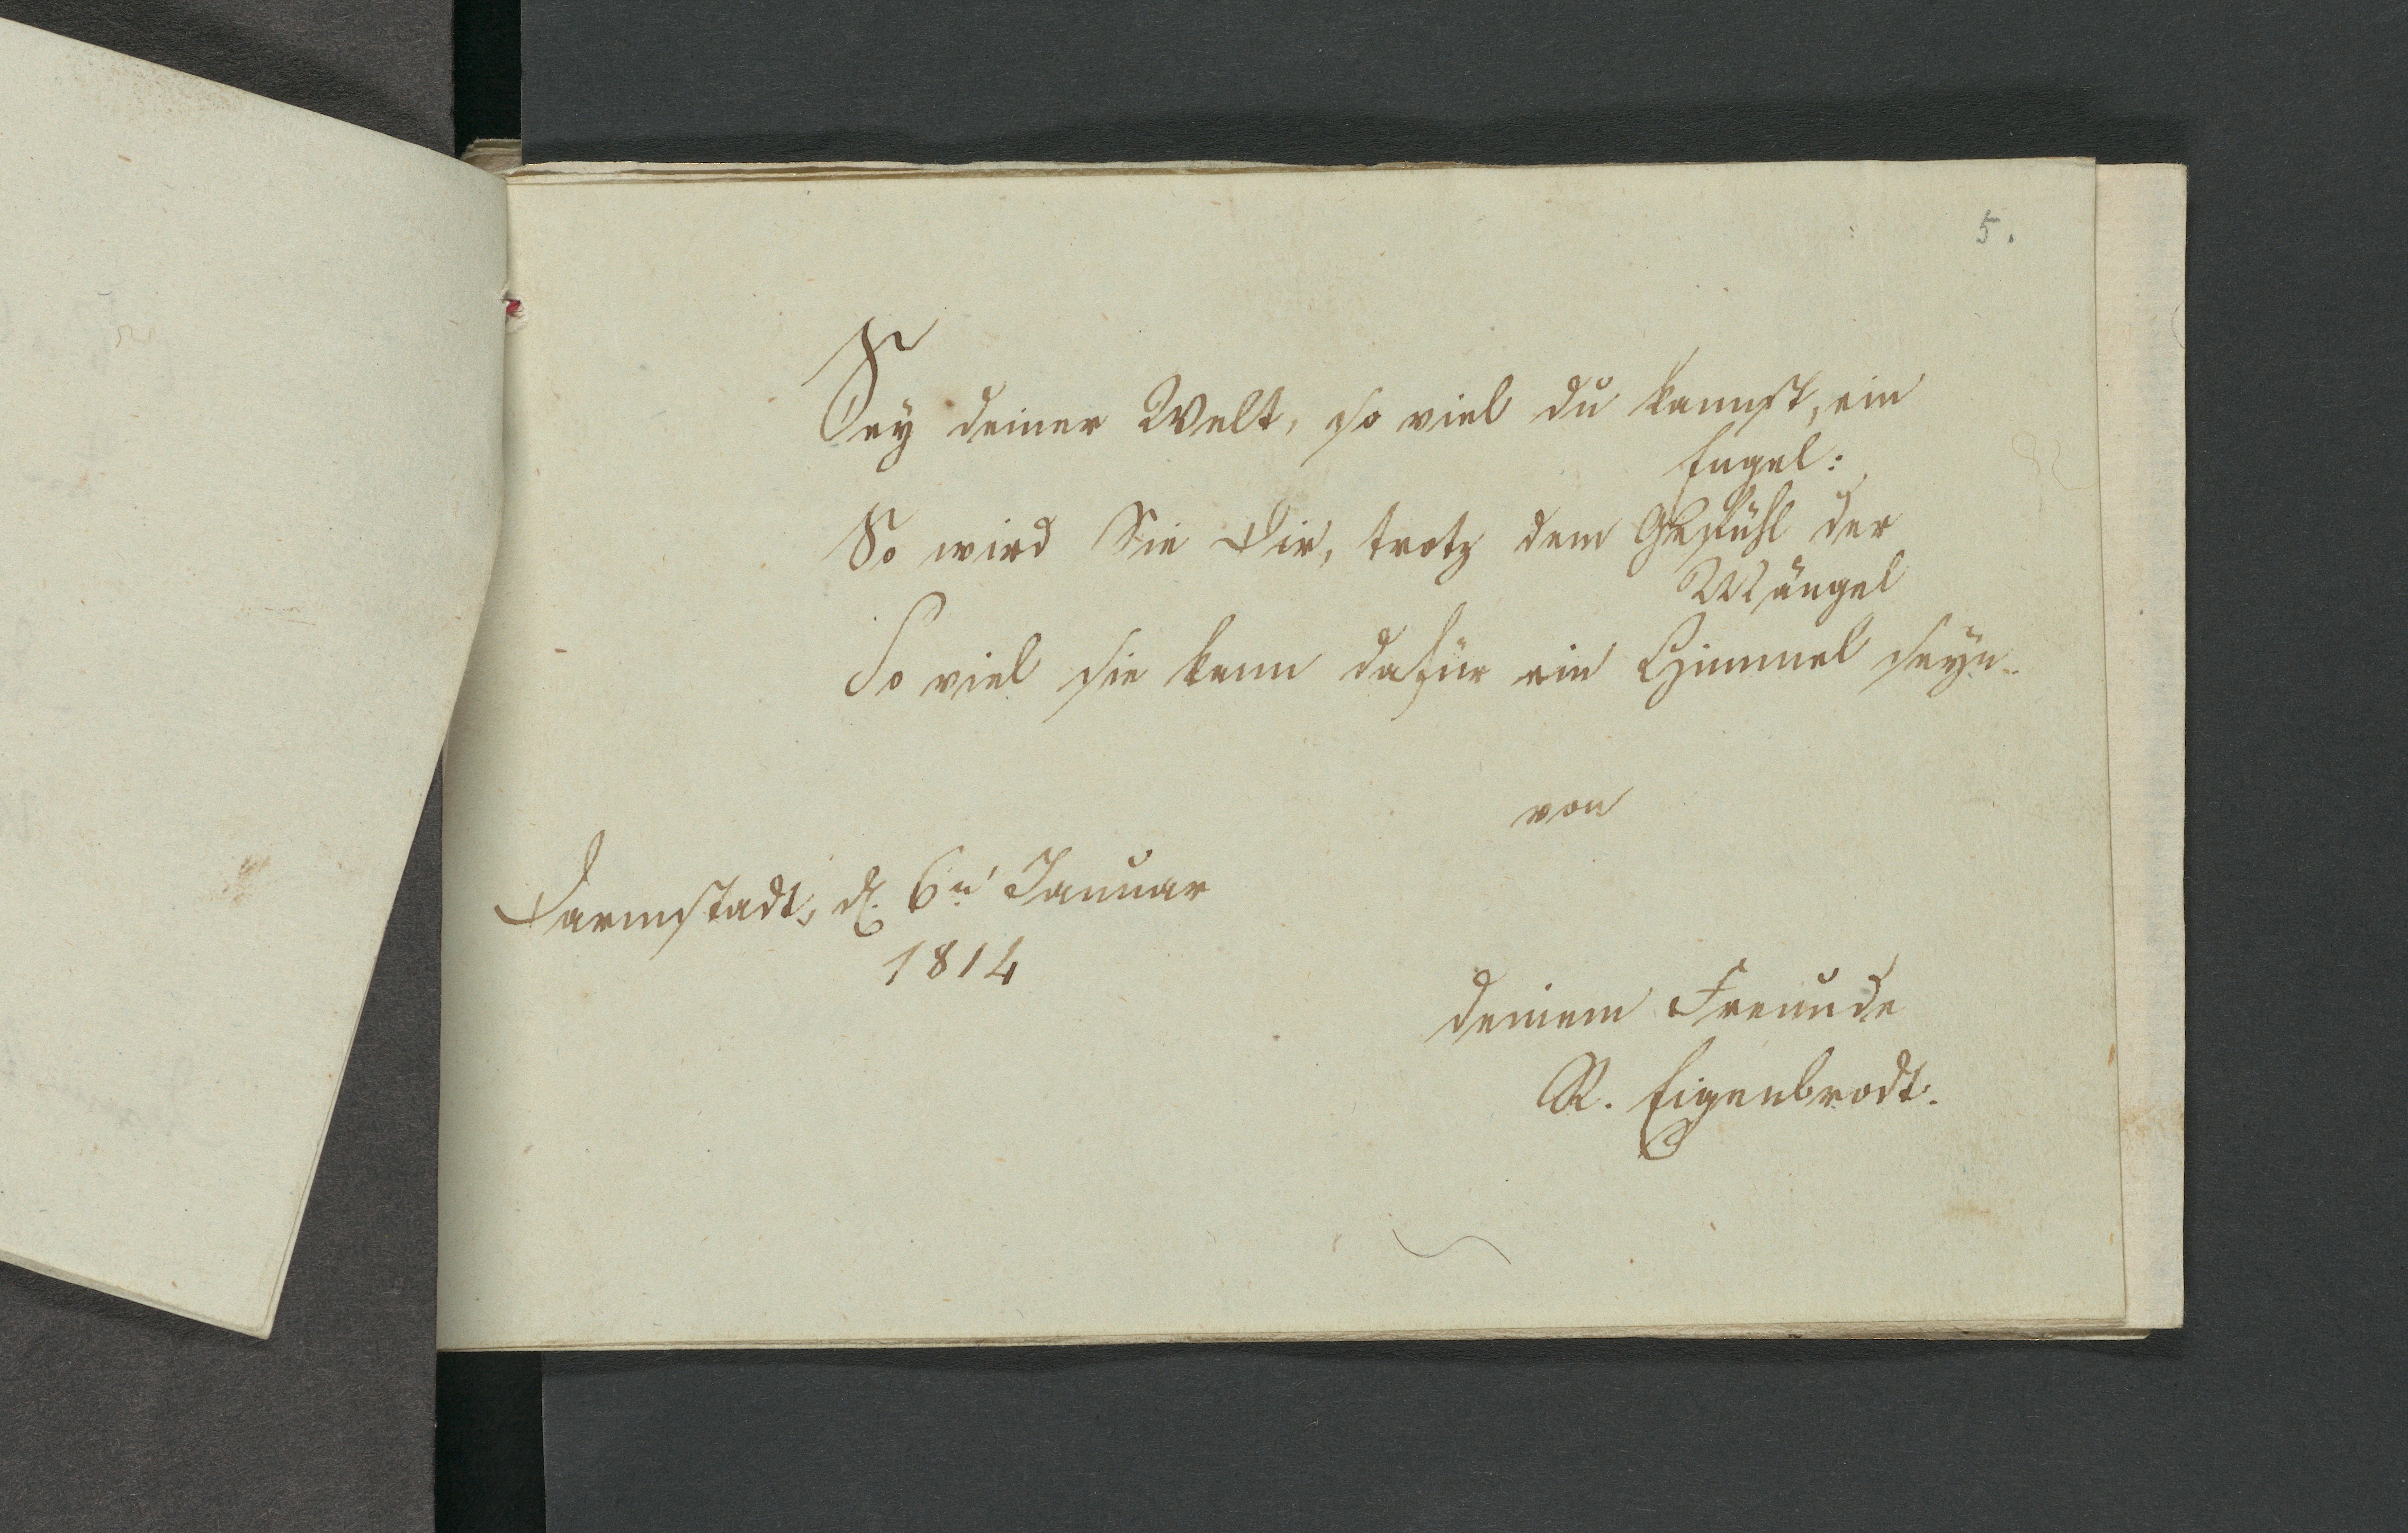 5.
Sey deiner Welt, so viel du kannst, ein
Engel:
So wird Sie Dir, trotz dem Gefühl der
Mängel
So viel sie kann dafür ein Himmel seyn.
von
Darmstadt, d. 6n Januar
1814
deinem Freunde
R. Eigenbrodt.